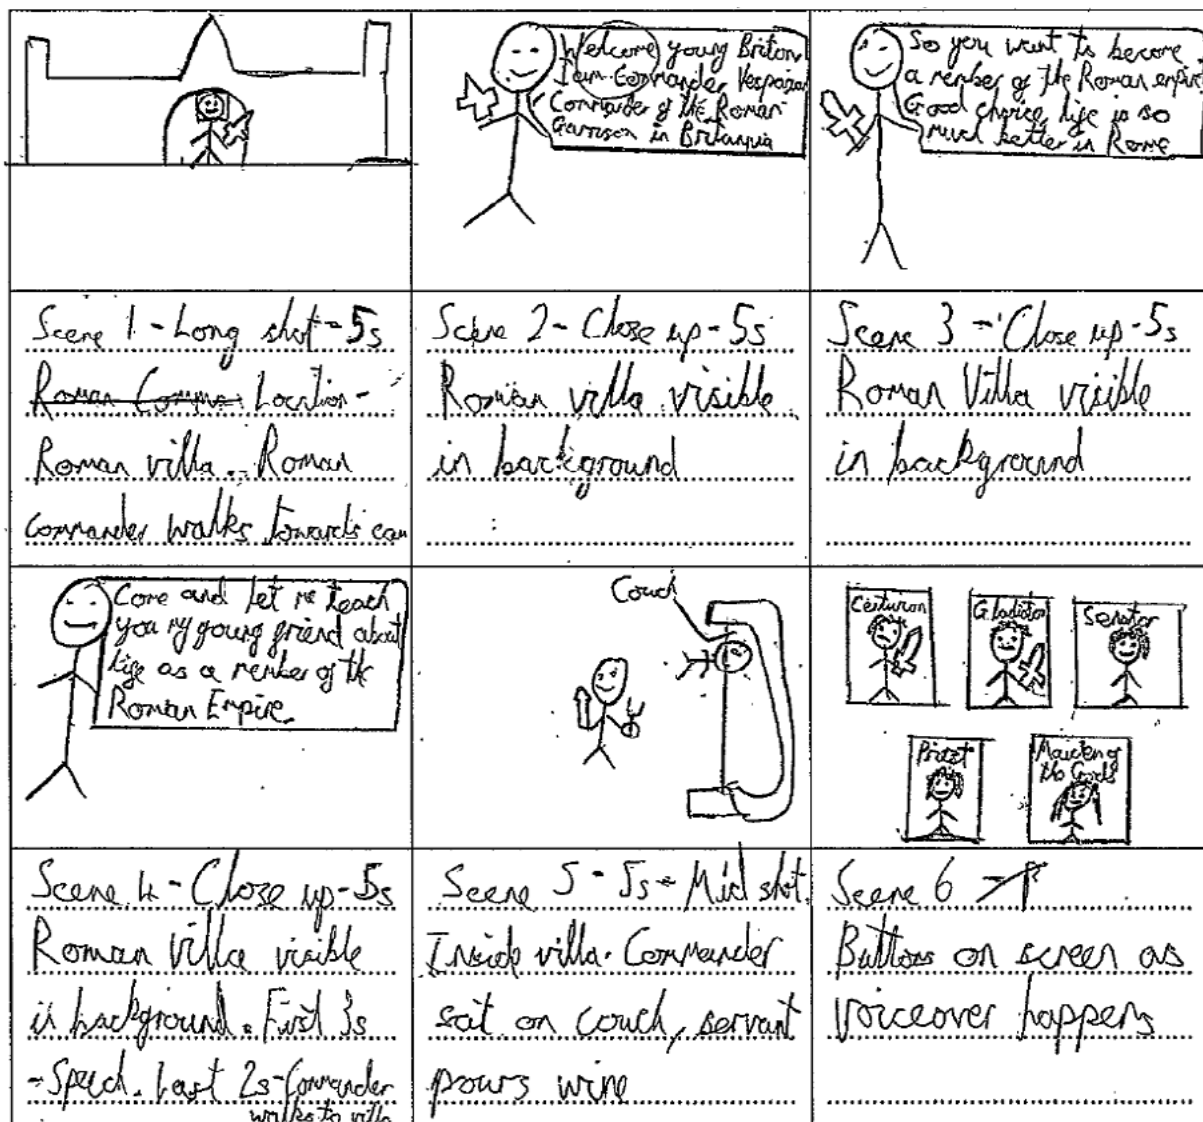 Welcome young Briton
I am Commander Vespasian
Commander of the Roman
Garrison in Britannia
So you want to become
a member of the Roman empire
Good choice, life is so
much better in Rome
Scene 1 - Long shot - 5s
Roman Comma Location -
Roman villa. Roman
Commander walks towards cam
Scene 2 - Close up - 5s
Roman villa visible
in background
Scene 3 - Close up - 5s
Roman Villa visible
in background
Come and let me teach
you my young friend about
life as a member of the
Roman Empire.
Couch
Centurion
Gladiator
Senator
Priest
Maiden of
the Gods
Scene 4 - Close up - 5s
Roman villa visible
in background. First 3s
- Speech. Last 2s - Commander
walks to villa
Scene 5 - 5s - Mid shot.
Inside villa. Commander
sat on couch, servant
pours wine
Scene 6
Buttons on screen as
voiceover happens